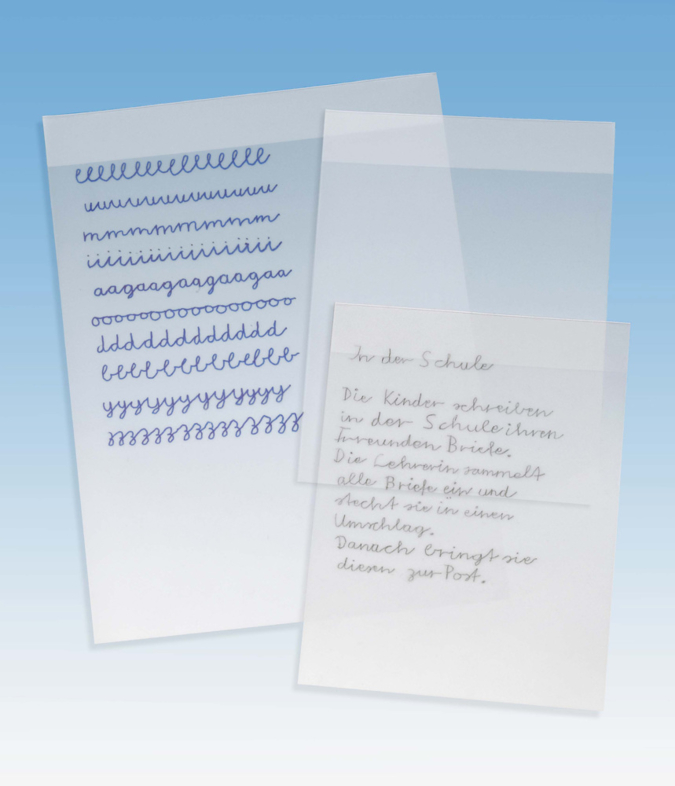 eeeeeeeeeeeeeeee
uuuuuuuuuuuu
mmmmmmmmm
iiiiiiiiiiiiiiii
aagaagaagaagaa
oooooooooooooooo
dddddddddddd
bbbbbbbbbbbbb
yyyyyyyyyyyy
zzzzzzzzzzzzz
In der Schule
Die Kinder schreiben
in der Schule ihren
Freunden Briefe.
Die Lehrerin sammelt
alle Briefe ein und
steckt sie in einen
Umschlag.
Danach bringt sie
diesen zur Post.